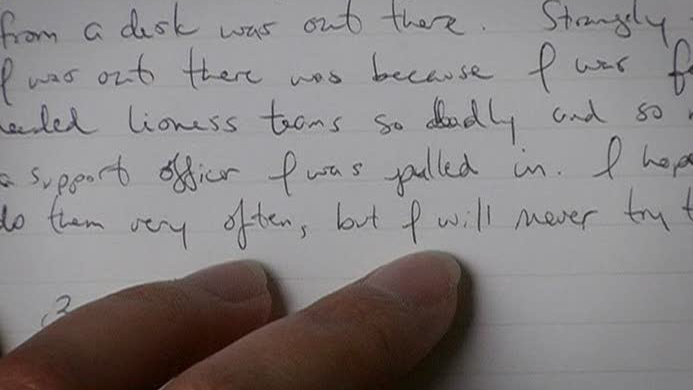 from a desk was out there. Strangely
I was out there was because I was f
needed lioness teams so badly and so
a support officer I was pulled in. I hope
do them very often, but I will never try t